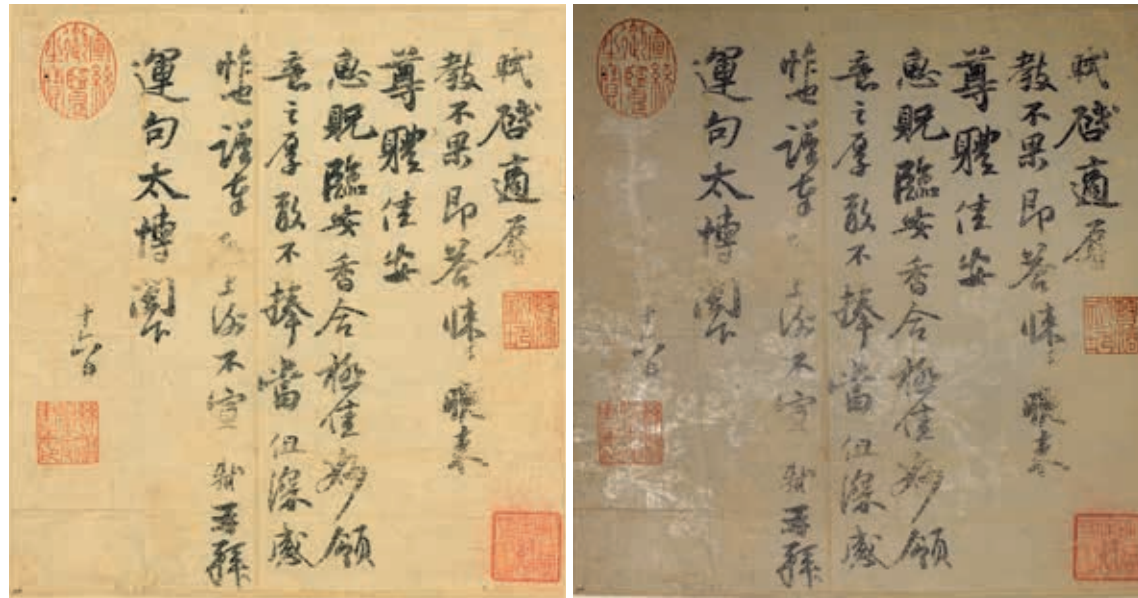 軾啓適辱
教不果即答悚悚晚來
尊體佳安
惠貺臨安香合極佳妙領
意之厚敢不捧當但深感
怍也謹奉 上謝不宣 軾再拜
運句太博閤下
十六日
軾啓適辱
教不果即答悚悚晚來
尊體佳安
惠貺臨安香合極佳妙領
意之厚敢不捧當但深感
怍也謹奉 上謝不宣 軾再拜
運句太博閤下
十六日